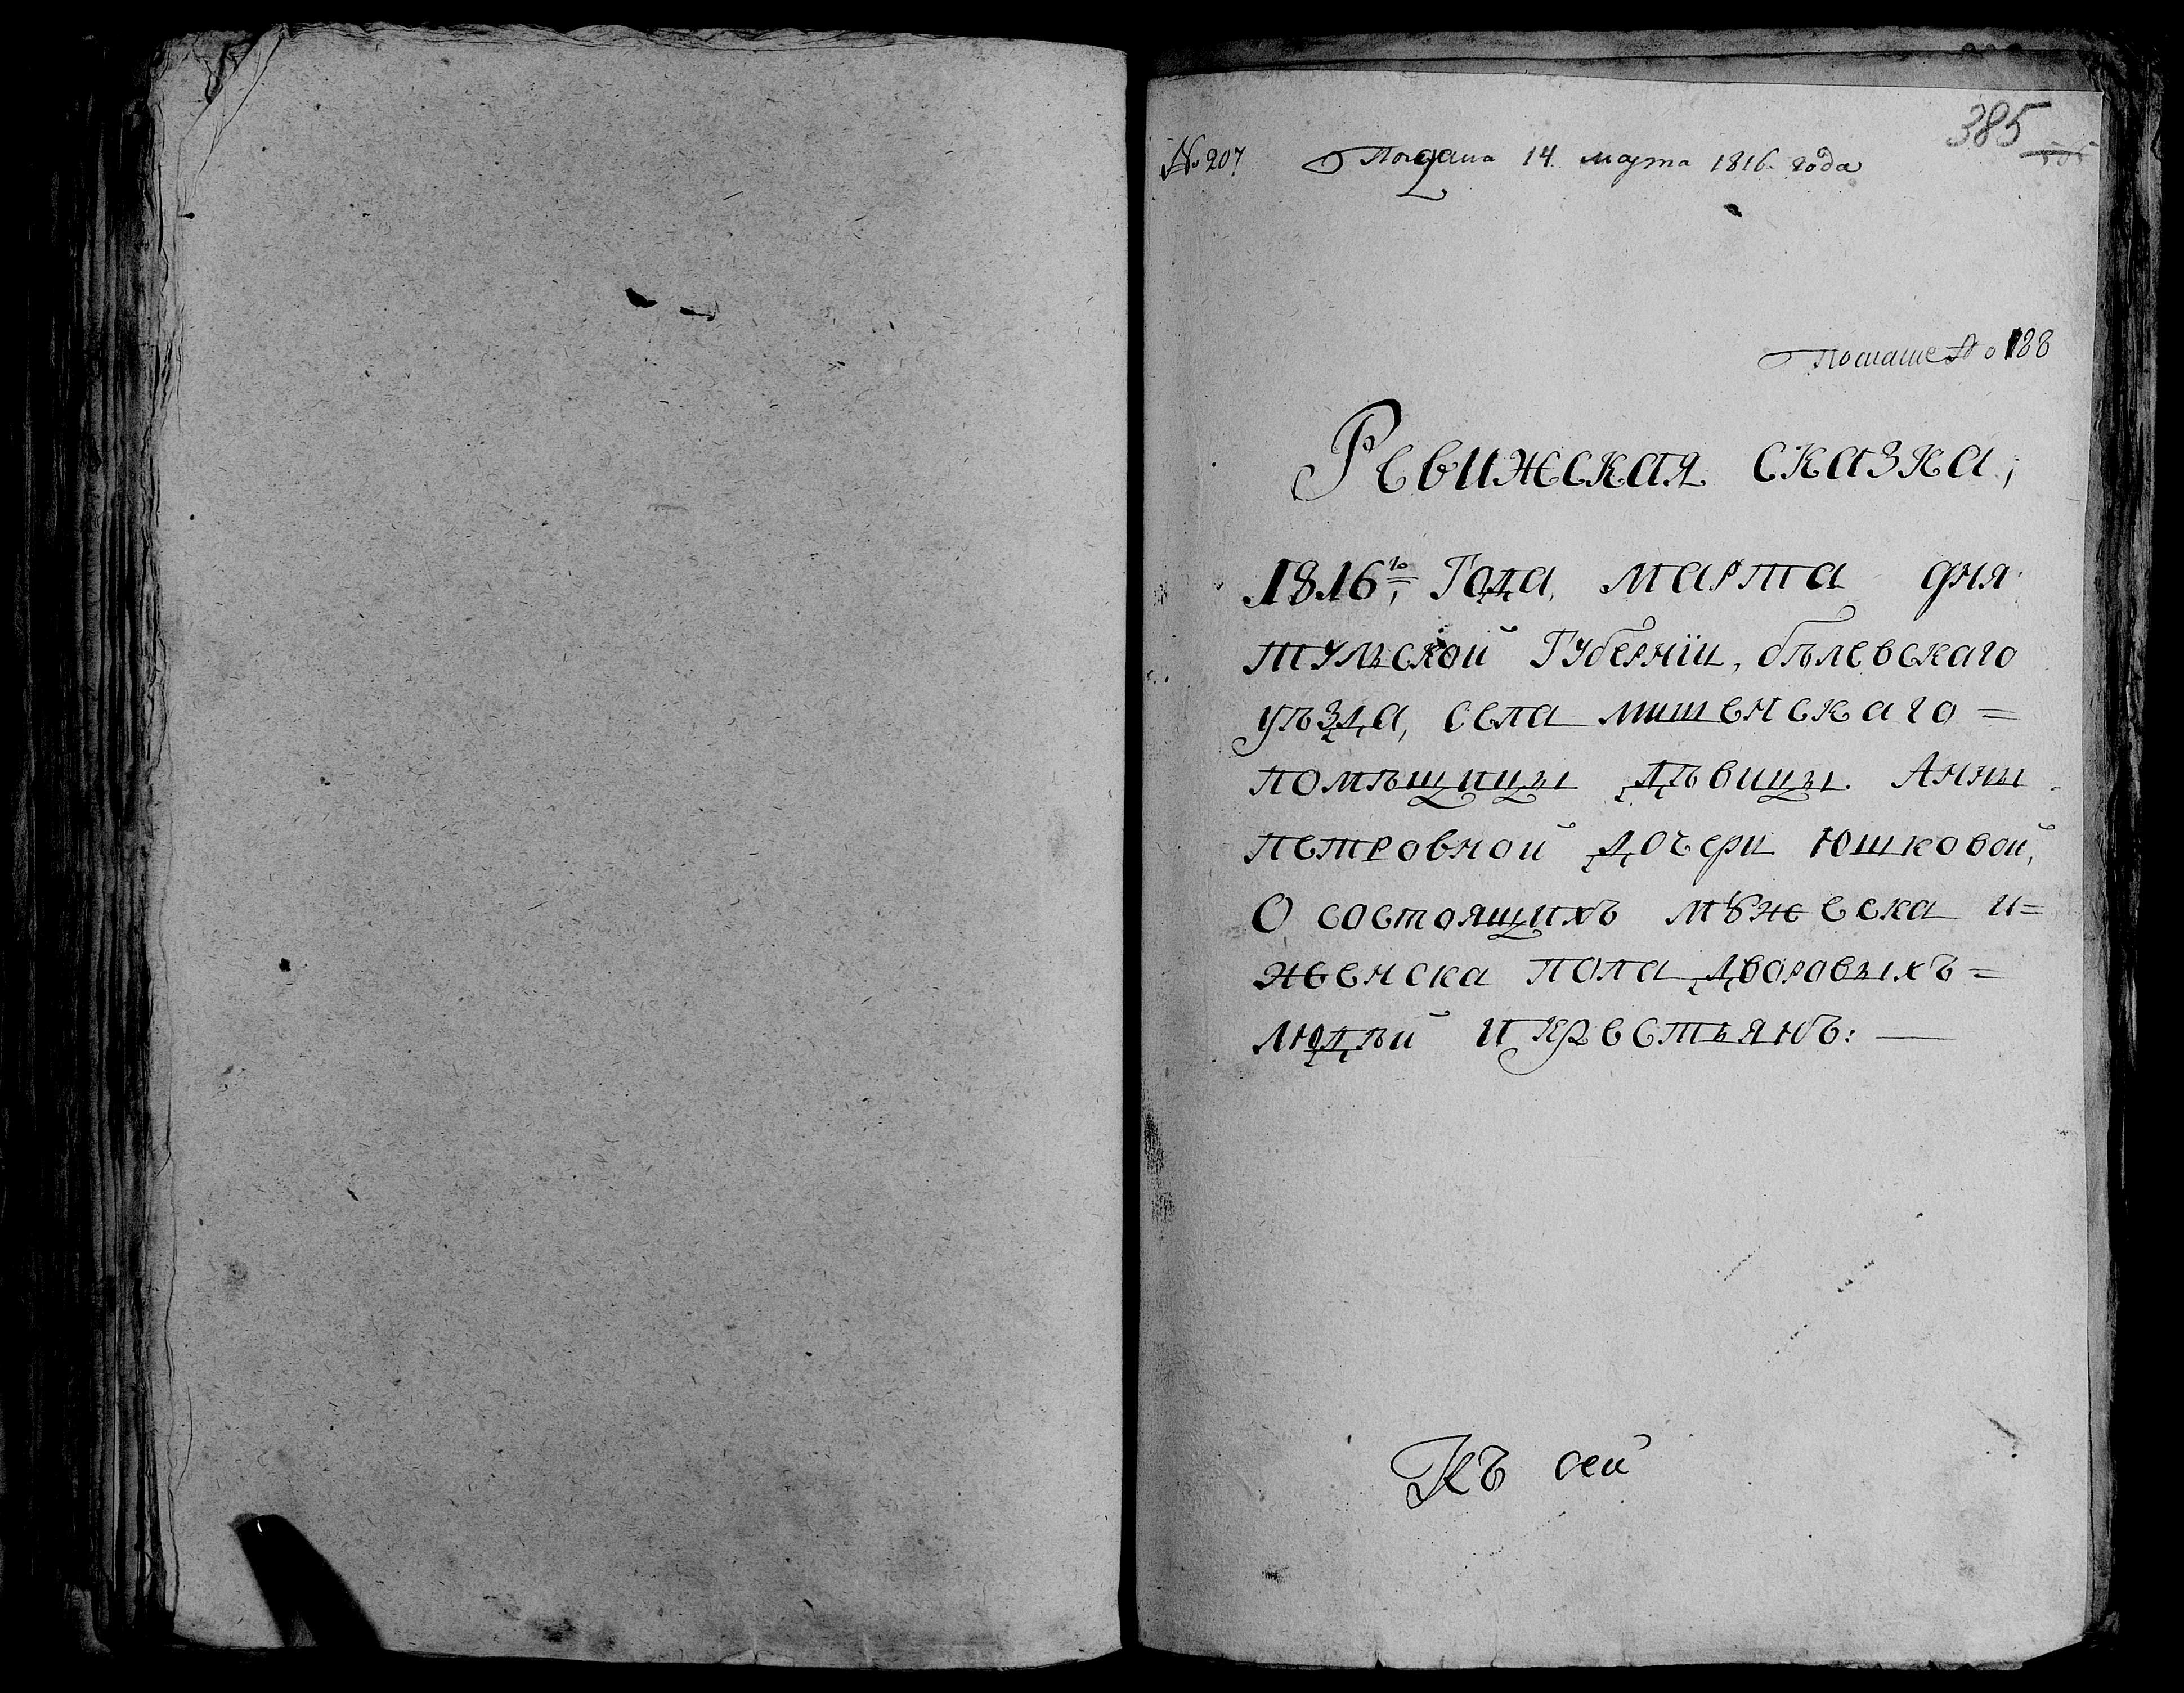 385
№ 207 Подана 14. марта 1816. года
№ 188
Ревижская сказка,
1816го Года, марта дня
тульской Губернїи, бѣлевскаго
уѣзда, села мишенскаго =
помѣщицы дѣвицы. Анны
петровной дочери Юшковой,
О состоящихъ мꙋжеска и =
женска пола дворовыхъ =
людѣй и крестьянъ: —
Къ сей